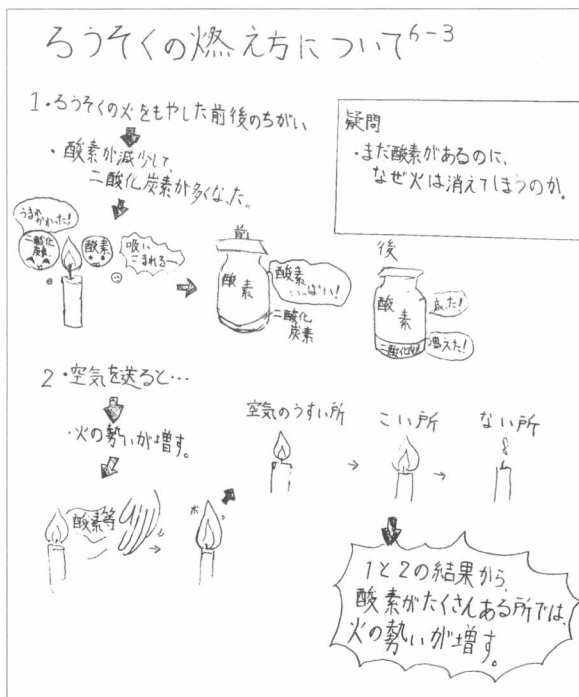 ろうそくの燃え方について 6-3
1・ろうそくの火をもやした前後のちがい
・酸素が減少して、
二酸化炭素が多くなった。
疑問
・まだ酸素があるのに、
なぜ火は消えてしまうのか。
うまれかわった!
二酸化
炭素
酸素
吸い
こまれるー
前
酸素
酸素
いっぱい!
二酸化
炭素
後
酸素
減った!
二酸化炭素
増えた!
2・空気を送ると…
・火の勢いが増す。
酸素等
ボ
空気のうすい所
こい所
ない所
1と2の結果から、
酸素がたくさんある所では、
火の勢いが増す。